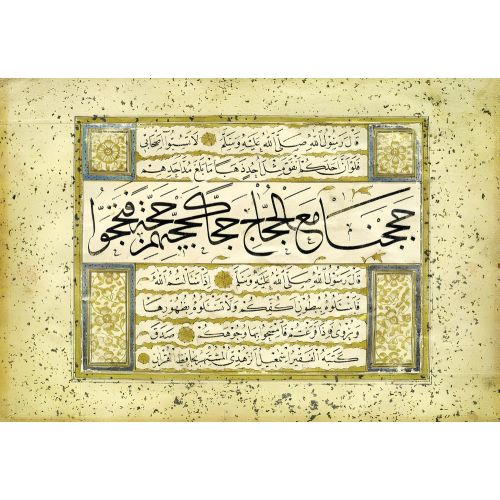 قال رسول الله صلى الله عليه وسلم لا تسبوا أصحابي
فلو أن أحدكم أنفق مثل أحد ذهبا ما بلغ مد أحدهم
حججنا مع الحجاج حجا كحجهم
قال رسول الله صلى الله عليه وسلم إذا سألتم الله
فاسألوه ببطون أكفكم ولا تسألوه بظهورها
ويروى فإذا فامسحوا بها وجوهكم صدق
كتبه الفقير إسمعيل الزهدي المشتهر بحافظ القرآن